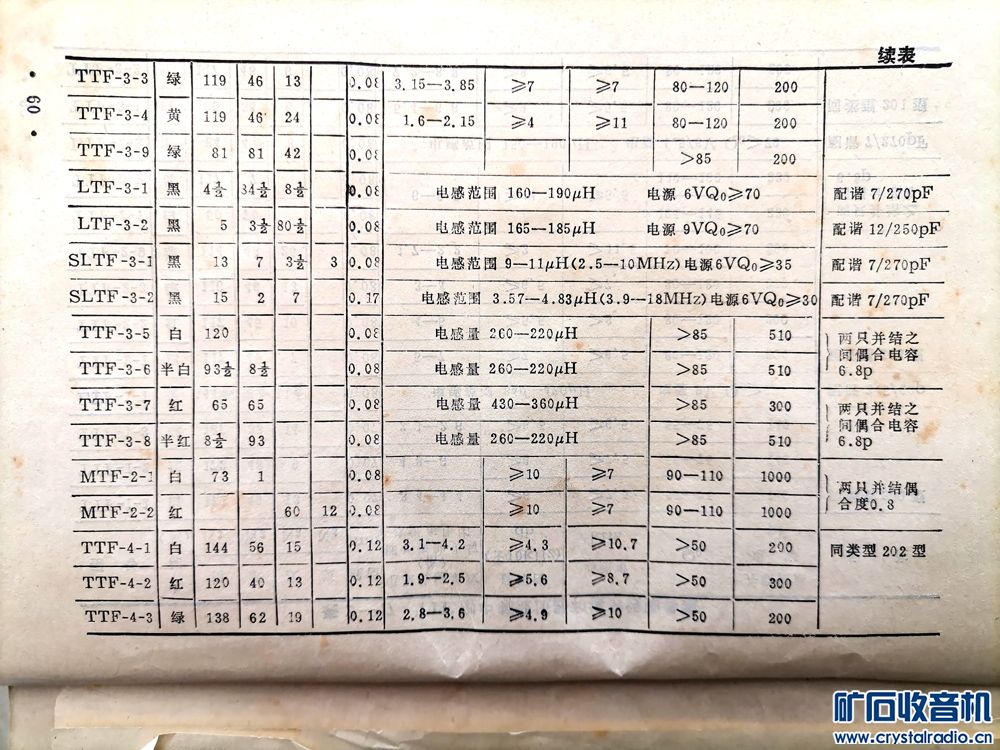 续表
• 60 •
TTF-3-3 绿 119 46 13 0.08 3.15—3.85 ≥7 ≥7 80—120 200
TTF-3-4 黄 119 46 24 0.08 1.6—2.15 ≥4 ≥11 80—120 200
TTF-3-9 绿 81 81 42 0.08 >85 200
LTF-3-1 黑 4½ 34½ 8½ 0.08 电感范围 160—190μH 电源 6VQ₀≥70 配谐 7/270pF
LTF-3-2 黑 5 3½ 80½ 0.08 电感范围 165—185μH 电源 9VQ₀≥70 配谐 12/250pF
SLTF-3-1 黑 13 7 3½ 3 0.08 电感范围 9—11μH(2.5—10MHz) 电源6VQ₀≥35 配谐 7/270pF
SLTF-3-2 黑 15 2 7 0.17 电感范围 3.57—4.83μH(3.9—18MHz) 电源6VQ₀≥30 配谐 7/270pF
TTF-3-5 白 120 0.08 电感量 260—220μH >85 510 两只并结之
TTF-3-6 半白 93½ 8½ 0.08 电感量 260—220μH >85 510 间偶合电容
6.8p
TTF-3-7 红 65 65 0.08 电感量 430—360μH >85 300 两只并结之
TTF-3-8 半红 8½ 93 0.08 电感量 260—220μH >85 510 间偶合电容
6.8p
MTF-2-1 白 73 1 0.08 ≥10 ≥7 90—110 1000 两只并结偶
MTF-2-2 红 60 12 0.08 ≥10 ≥7 90—110 1000 合度0.8
TTF-4-1 白 144 56 15 0.12 3.1—4.2 ≥4.3 ≥10.7 >50 200 同类型 202 型
TTF-4-2 红 120 40 13 0.12 1.9—2.5 ≥5.6 ≥8.7 >50 300
TTF-4-3 绿 138 62 19 0.12 2.8—3.6 ≥4.9 ≥10 >50 200
矿石收音机
www.crystalradio.cn